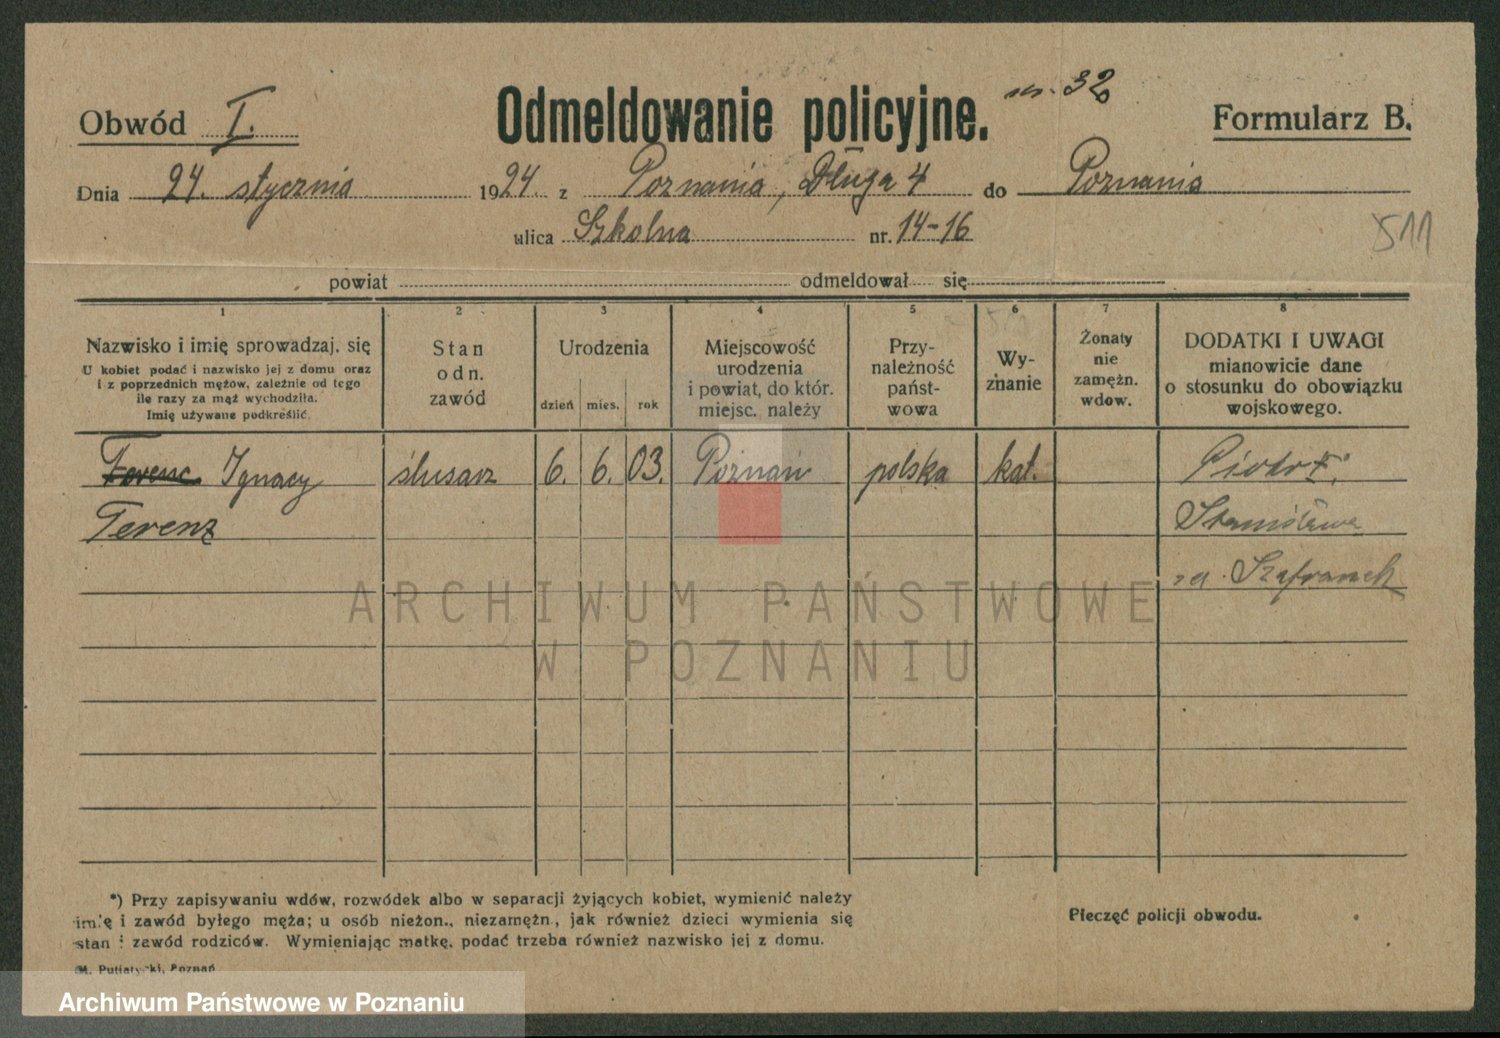 Obwód I. Odmeldowanie policyjne. nr. 32 Formularz B.
Dnia 24. stycznia 1924. z Poznania, Długa 4 do Poznania
ulica Szkolna nr. 14-16
511
powiat odmeldował się
1 2 3 4 5 6 7 8
Nazwisko i imię sprowadzaj. się
U kobiet podać i nazwisko jej z domu oraz
i z poprzednich mężów, zależnie od tego
ile razy za mąż wychodziła.
Imię używane podkreślić.
Stan
odn.
zawód
Urodzenia
dzień mies. rok
Miejscowość
urodzenia
i powiat, do któr.
miejsc. należy
Przy-
należność
państ-
wowa
Wy-
znanie
Żonaty
nie
zamężn.
wdow.
DODATKI I UWAGI
mianowicie dane
o stosunku do obowiązku
wojskowego.
Ferenc Ignacy ślusarz 6. 6. 03. Poznań polska kat. Piotr
Ferenz Stanisława
Szafranek
ARCHIWUM PAŃSTWOWE
W POZNANIU
*) Przy zapisywaniu wdów, rozwódek albo w separacji żyjących kobiet, wymienić należy
imię i zawód byłego męża; u osób nieżon., niezamężn., jak również dzieci wymienia się
stan i zawód rodziców. Wymieniając matkę, podać trzeba również nazwisko jej z domu.
Pieczęć policji obwodu.
M. Putiatycki, Poznań
Archiwum Państwowe w Poznaniu